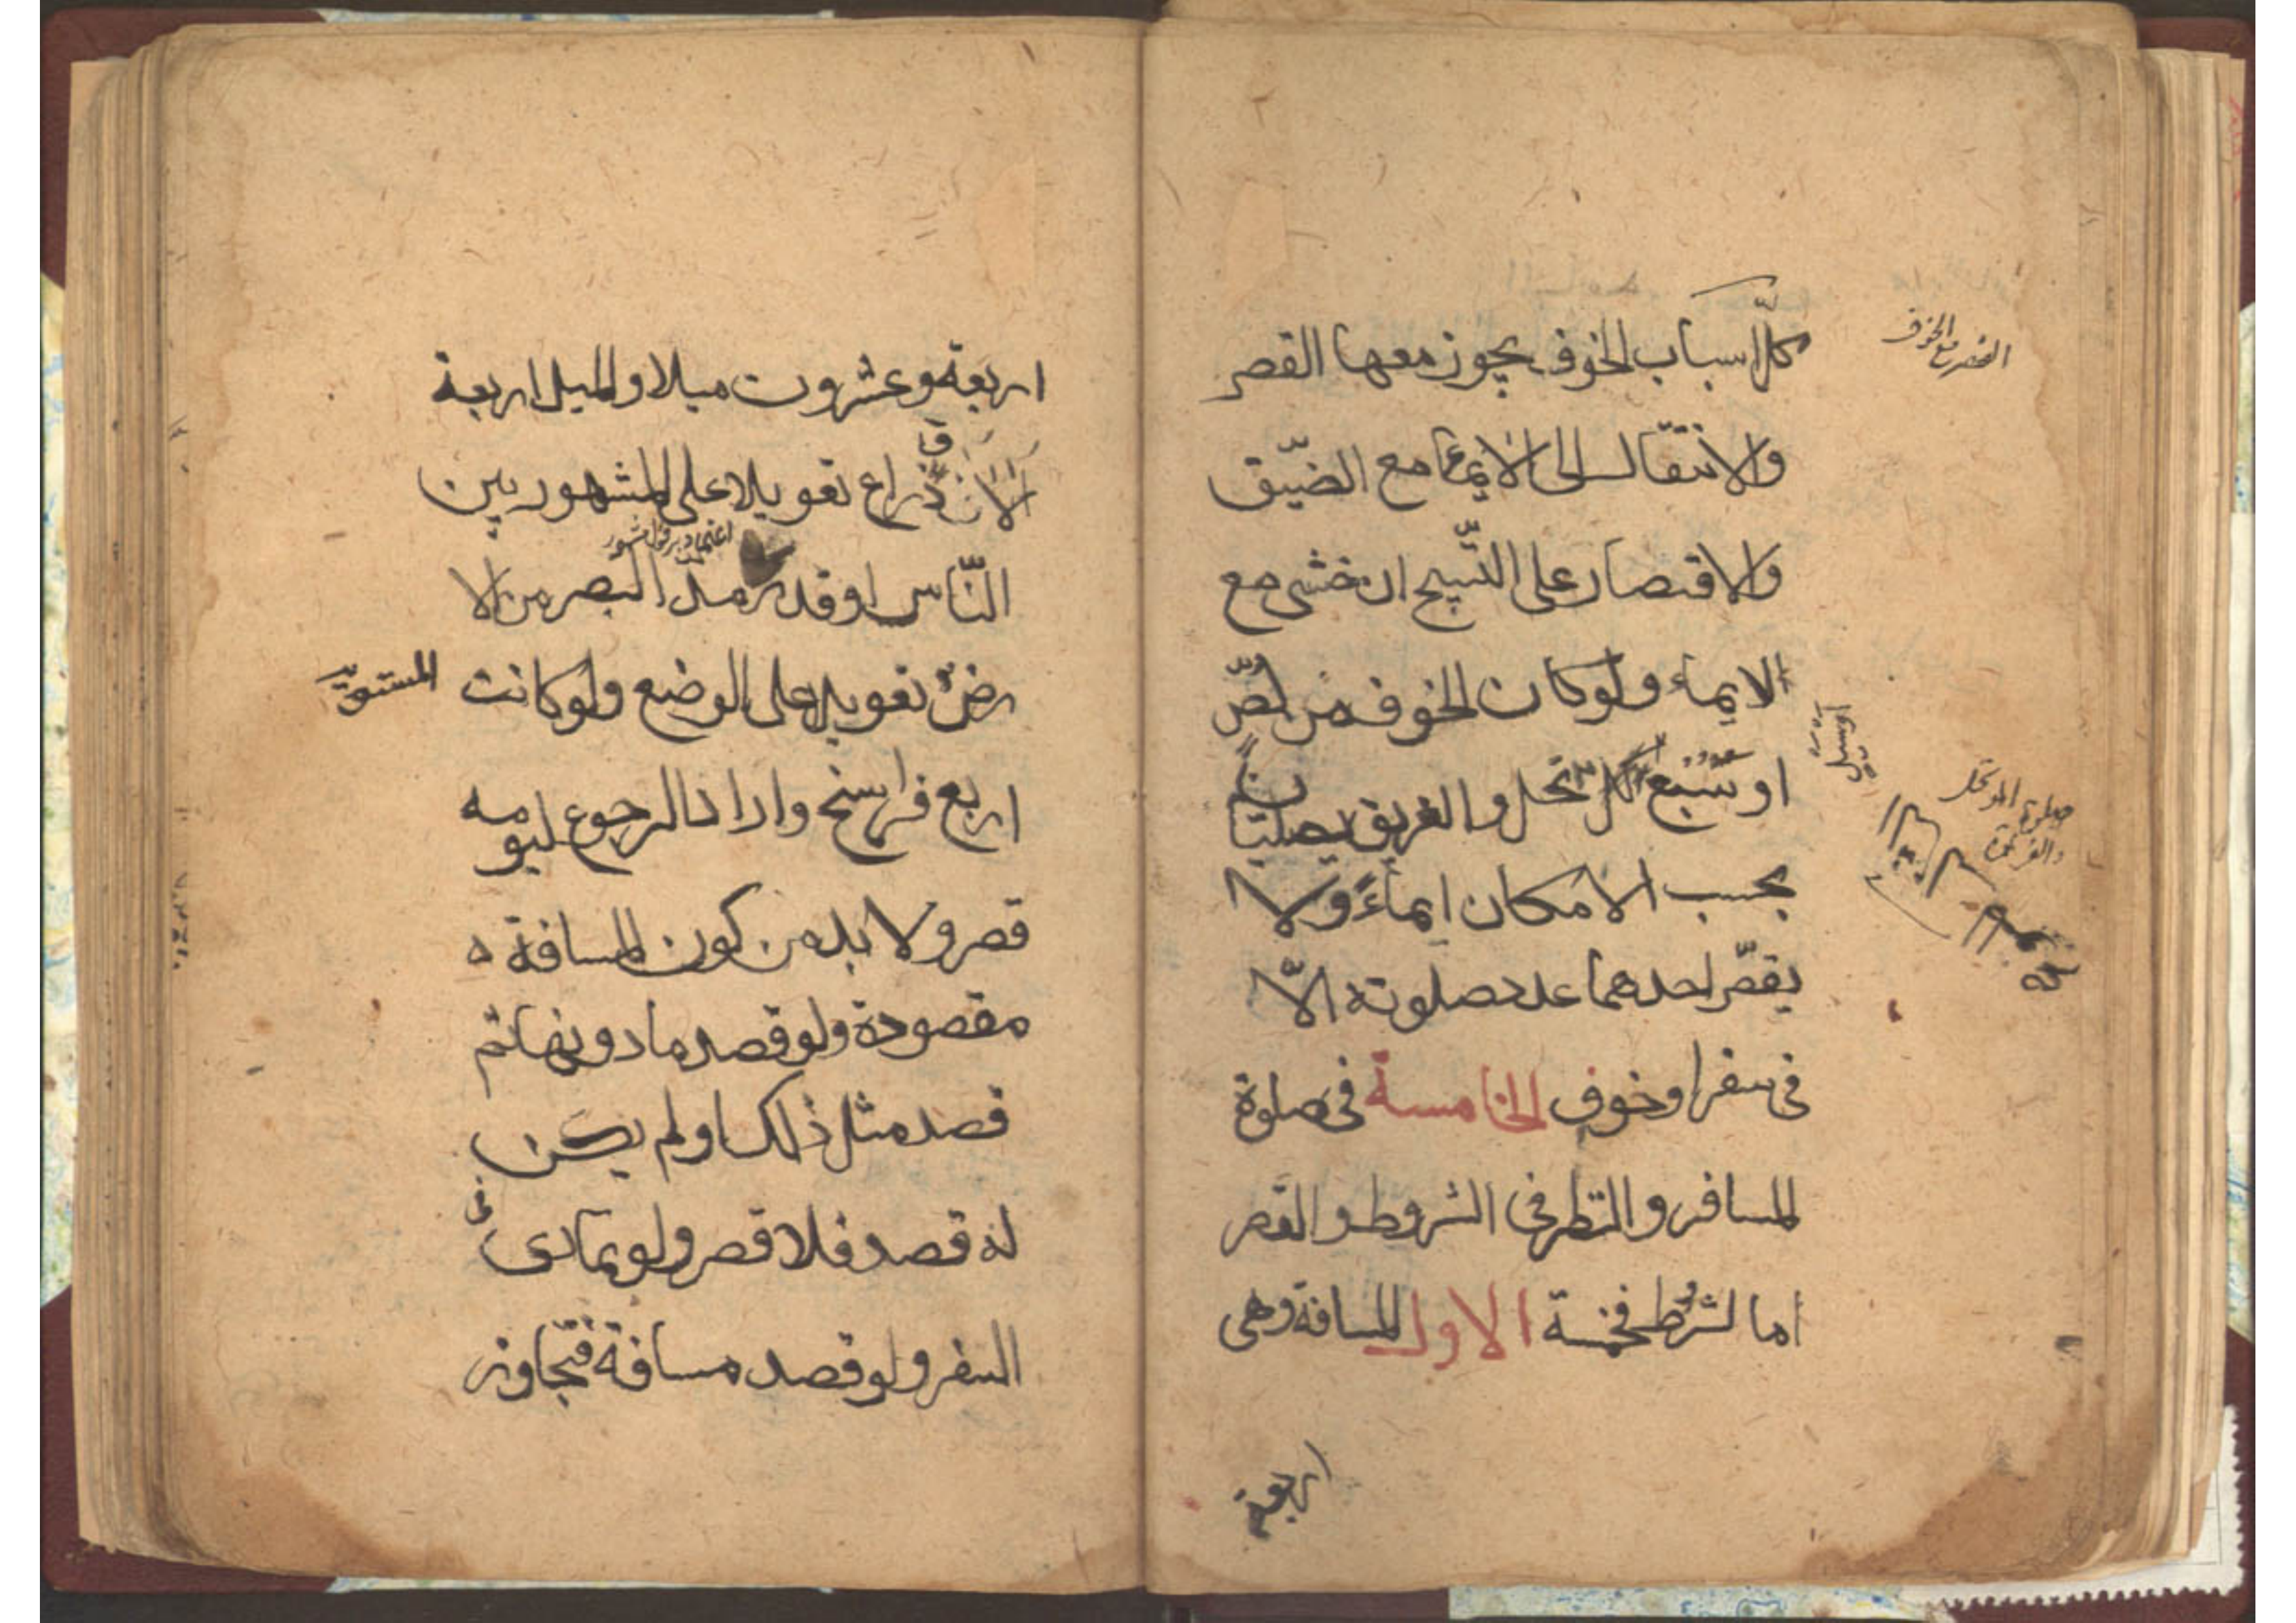 كلّ اسباب الخوف يجوز معها القصر
والانتقال الى الايماء مع الضيّق
والاقتصار على التّسبيح ان خشى مع
الايماء ولو كان الخوف من لصّ
او سبع
او سيل
الموتحل والغريق يصلّيان
بحسب الامكان ايماءً ولا
يقصّر احدهما عدد صلوته الّا
فى سفر او خوف الخامسة فى صلوة
المسافر والنظر فى الشروط والقصر
اما الشروط فخمسة الاول المسافة وهى
اربعة
القصر مع الخوف
صلوة الموتحل
والغريق
اربعة وعشرون ميلا والميل اربعة
الاف ذراع تعويلا على المشهور بين
اعتماد بر قول مشهور
النّاس او قدر مد البصر من الا
رض تعويلا على الوضع ولو كانت
المستوية
اربع فراسخ واراد الرجوع ليومه
قصر ولا بد من كون المسافة ه
مقصودة ولو قصد ما دونها ثم
قصد مثل ذلك او لم يكن
له قصد فلا قصر ولو تمادى فى
السفر ولو قصد مسافة فتجاوز